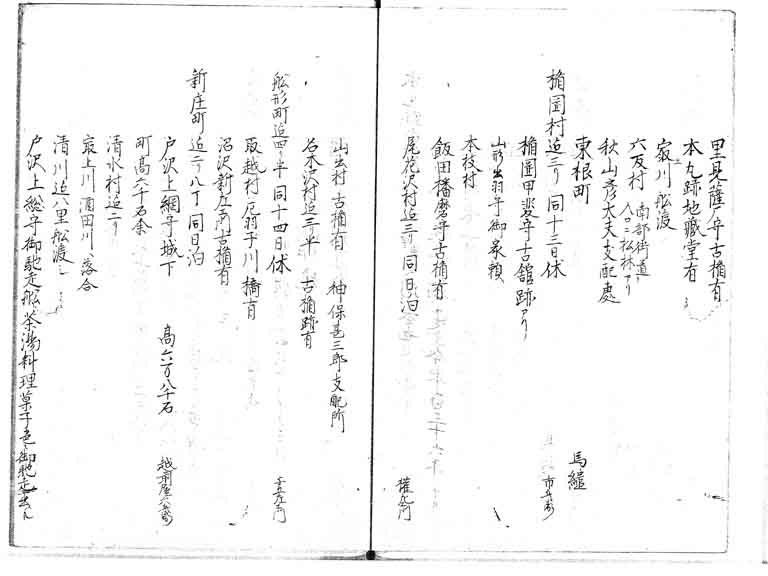 里見薩摩守古楯有
本丸跡地蔵堂有
寂川舩渡
六反村 南部街道 入口ニ松林アリ
秋山彦太夫支配處
東根町 馬継
楯岡村迠三リ 同十三日休 市兵衛
楯岡甲斐守古舘跡アリ
山形出羽守御家頼
本枝村
飯田播磨守古楯有
尾花沢村迠三リ 同日泊
山出村 古楯有 神保甚三郎支配所
名木沢村迠三リ半 古楯跡有
舩形町迠四リ半 同十四日休
取越村 厄羽子川 橋有
沼沢新庄両古楯有
新庄町迠二リ八丁 同日泊 越前屋六兵衛
戸沢上総守城下 高六万八千石
町高六千石余
清水村迠二リ
最上川酒田川ヘ落合
清川迠八里舩渡シ
戸沢上総守御馳走舩茶湯料理菓子色々御馳走出ル